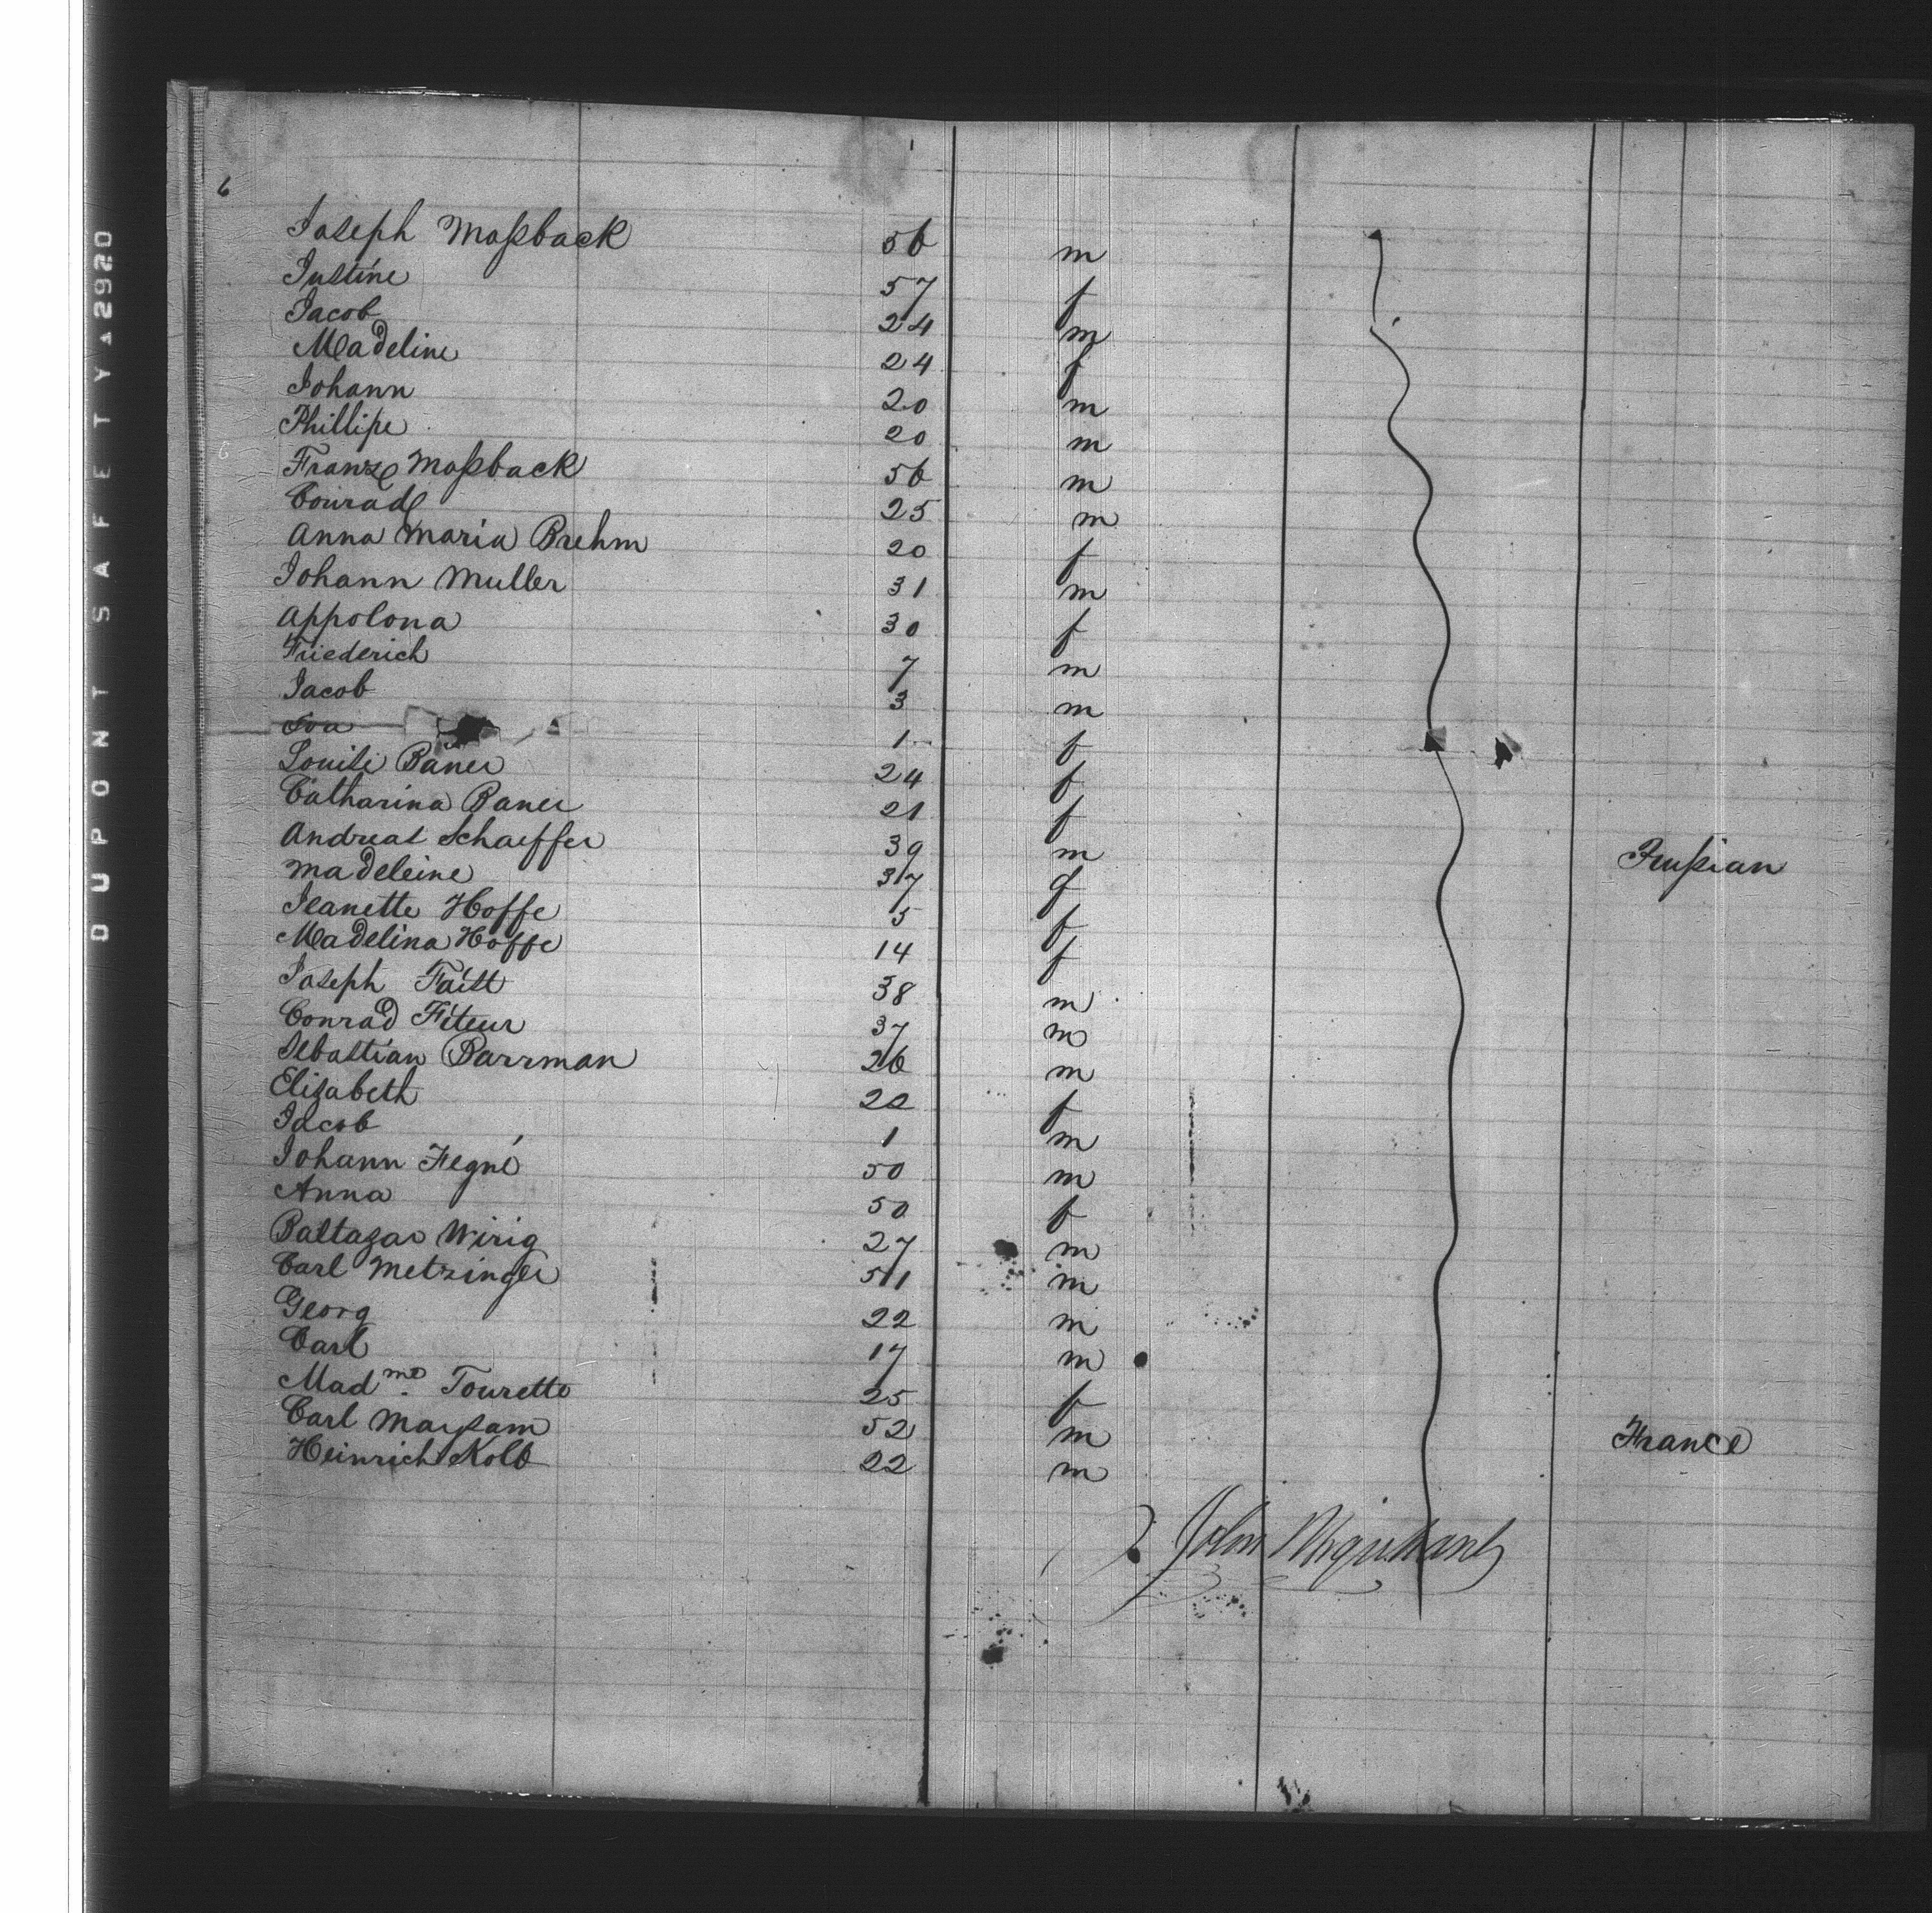 6
Joseph Maſsback 56 m
Justine 57 f
Jacob 24 m
Madeline 24 f
Johann 20 m
Phillipe 20 m
Franz Maſsback 56 m
Conrad 25 m
Anna Maria Brehm 20 f
Johann Muller 31 m
Appolona 30 f
Friederich 7 m
Jacob 3 m
Eva 1 f
Louise Baner 24 f
Catharina Baner 21 f
Andreas Schaeffer 39 m Pruſsian
Madeleine 37 f
Jeanette Hoffe 5 f
Madelina Hoffe 14 f
Joseph Faist 38 m
Conrad Fiteur 37 m
Sebastian Barrman 26 m
Elisabeth 22 f
Jacob 1 m
Johann Fegné 50 m
Anna 50 f
Baltazar Wirig 27 m
Carl Metzinger 51 m
Georg 22 m
Carl 17 m
Madme. Tourette 25 f
Carl 52 m France
Heinrich Kolb 22 m
John
DUPONT SAFETY A2920